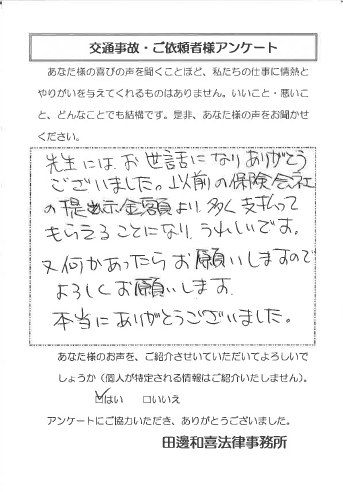 交通事故・ご依頼者様アンケート
あなた様の喜びの声を聞くことほど、私たちの仕事に情熱と
やりがいを与えてくれるものはありません。いいこと・悪いこ
と、どんなことでも結構です。是非、あなた様の声をお聞かせ
ください。
先生には、お世話になりありがとう
ございました。以前の保険会社
の提示金額より、多く支払って
もらえることになり、うれしいです。
又何かあったらお願いしますので
よろしくお願いします。
本当にありがとうございました。
あなた様のお声を、ご紹介させていただいてよろしいで
しょうか（個人が特定される情報はご紹介いたしません）。
☑はい　□いいえ
アンケートにご協力いただき、ありがとうございました。
田邊和喜法律事務所